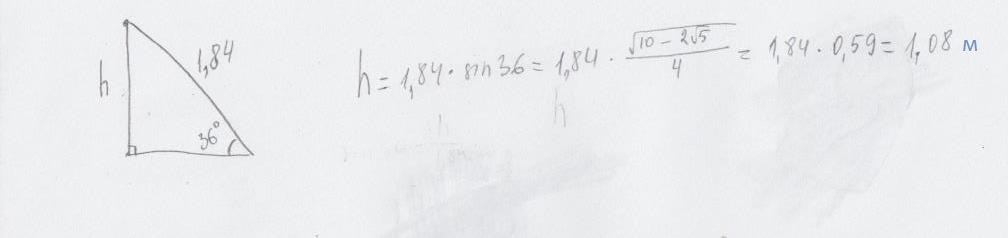 h
1,84
36°
h = 1,84 · sin 36 = 1,84 · √(10 − 2√5)/4 = 1,84 · 0,59 = 1,08 м
h